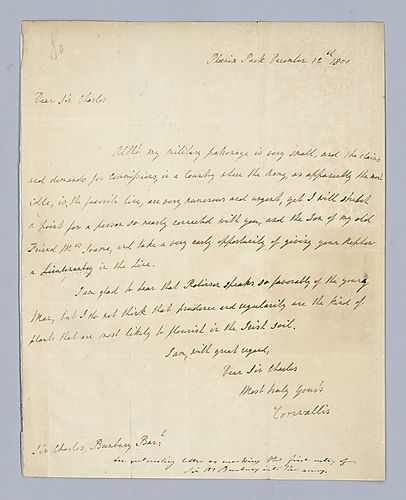 80
Phœnix Park December 12th 1800
Dear Sir Charles
Altho' my military patronage is very small, and the claims
and demands for Commissions, in a Country where the Army, as apparently the most
idle, is the favorite line, are very numerous and urgent, yet I will stretch
a point for a person so nearly connected with you, and the Son of my old
Friend Mrs. Soame, and take a very early opportunity of giving your Nephew
a Lieutenantcy in the Line.
I am glad to hear that Robinson speaks so favorably of the young
Man, but I do not think that prudence and regularity are the kind of
plants that are most likely to flourish in the Irish soil.
I am, with great regard,
Dear Sir Charles
Most truly Yours
Cornwallis
Sir Charles Bunbury Bart.
An interesting letter as marking the first entry of
Sir H. Bunbury into the army.